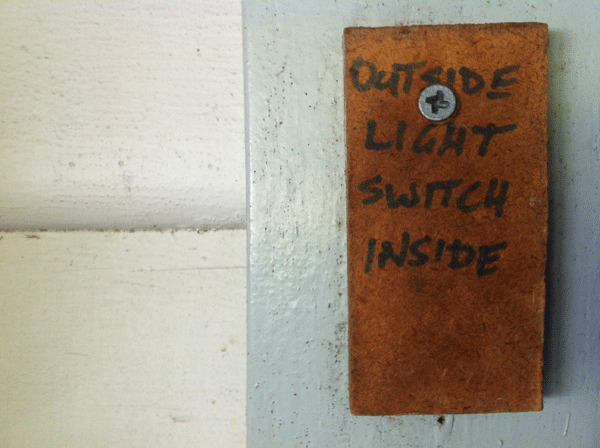 OUTSIDE
LIGHT
SWITCH
INSIDE